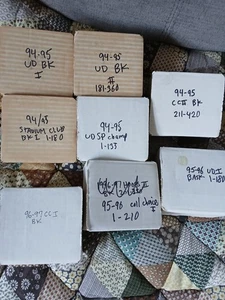 94-95
UD BK
I
94-95
UD BK
II
181-360
94-95
CC II BK
211-420
94/95
STADIUM CLUB
BK I 1-180
94-95
UD SP champ
1-135
95-96 UD I
BASK 1-180
96-97 CC I
BK
95-96 coll choice
I
1-210